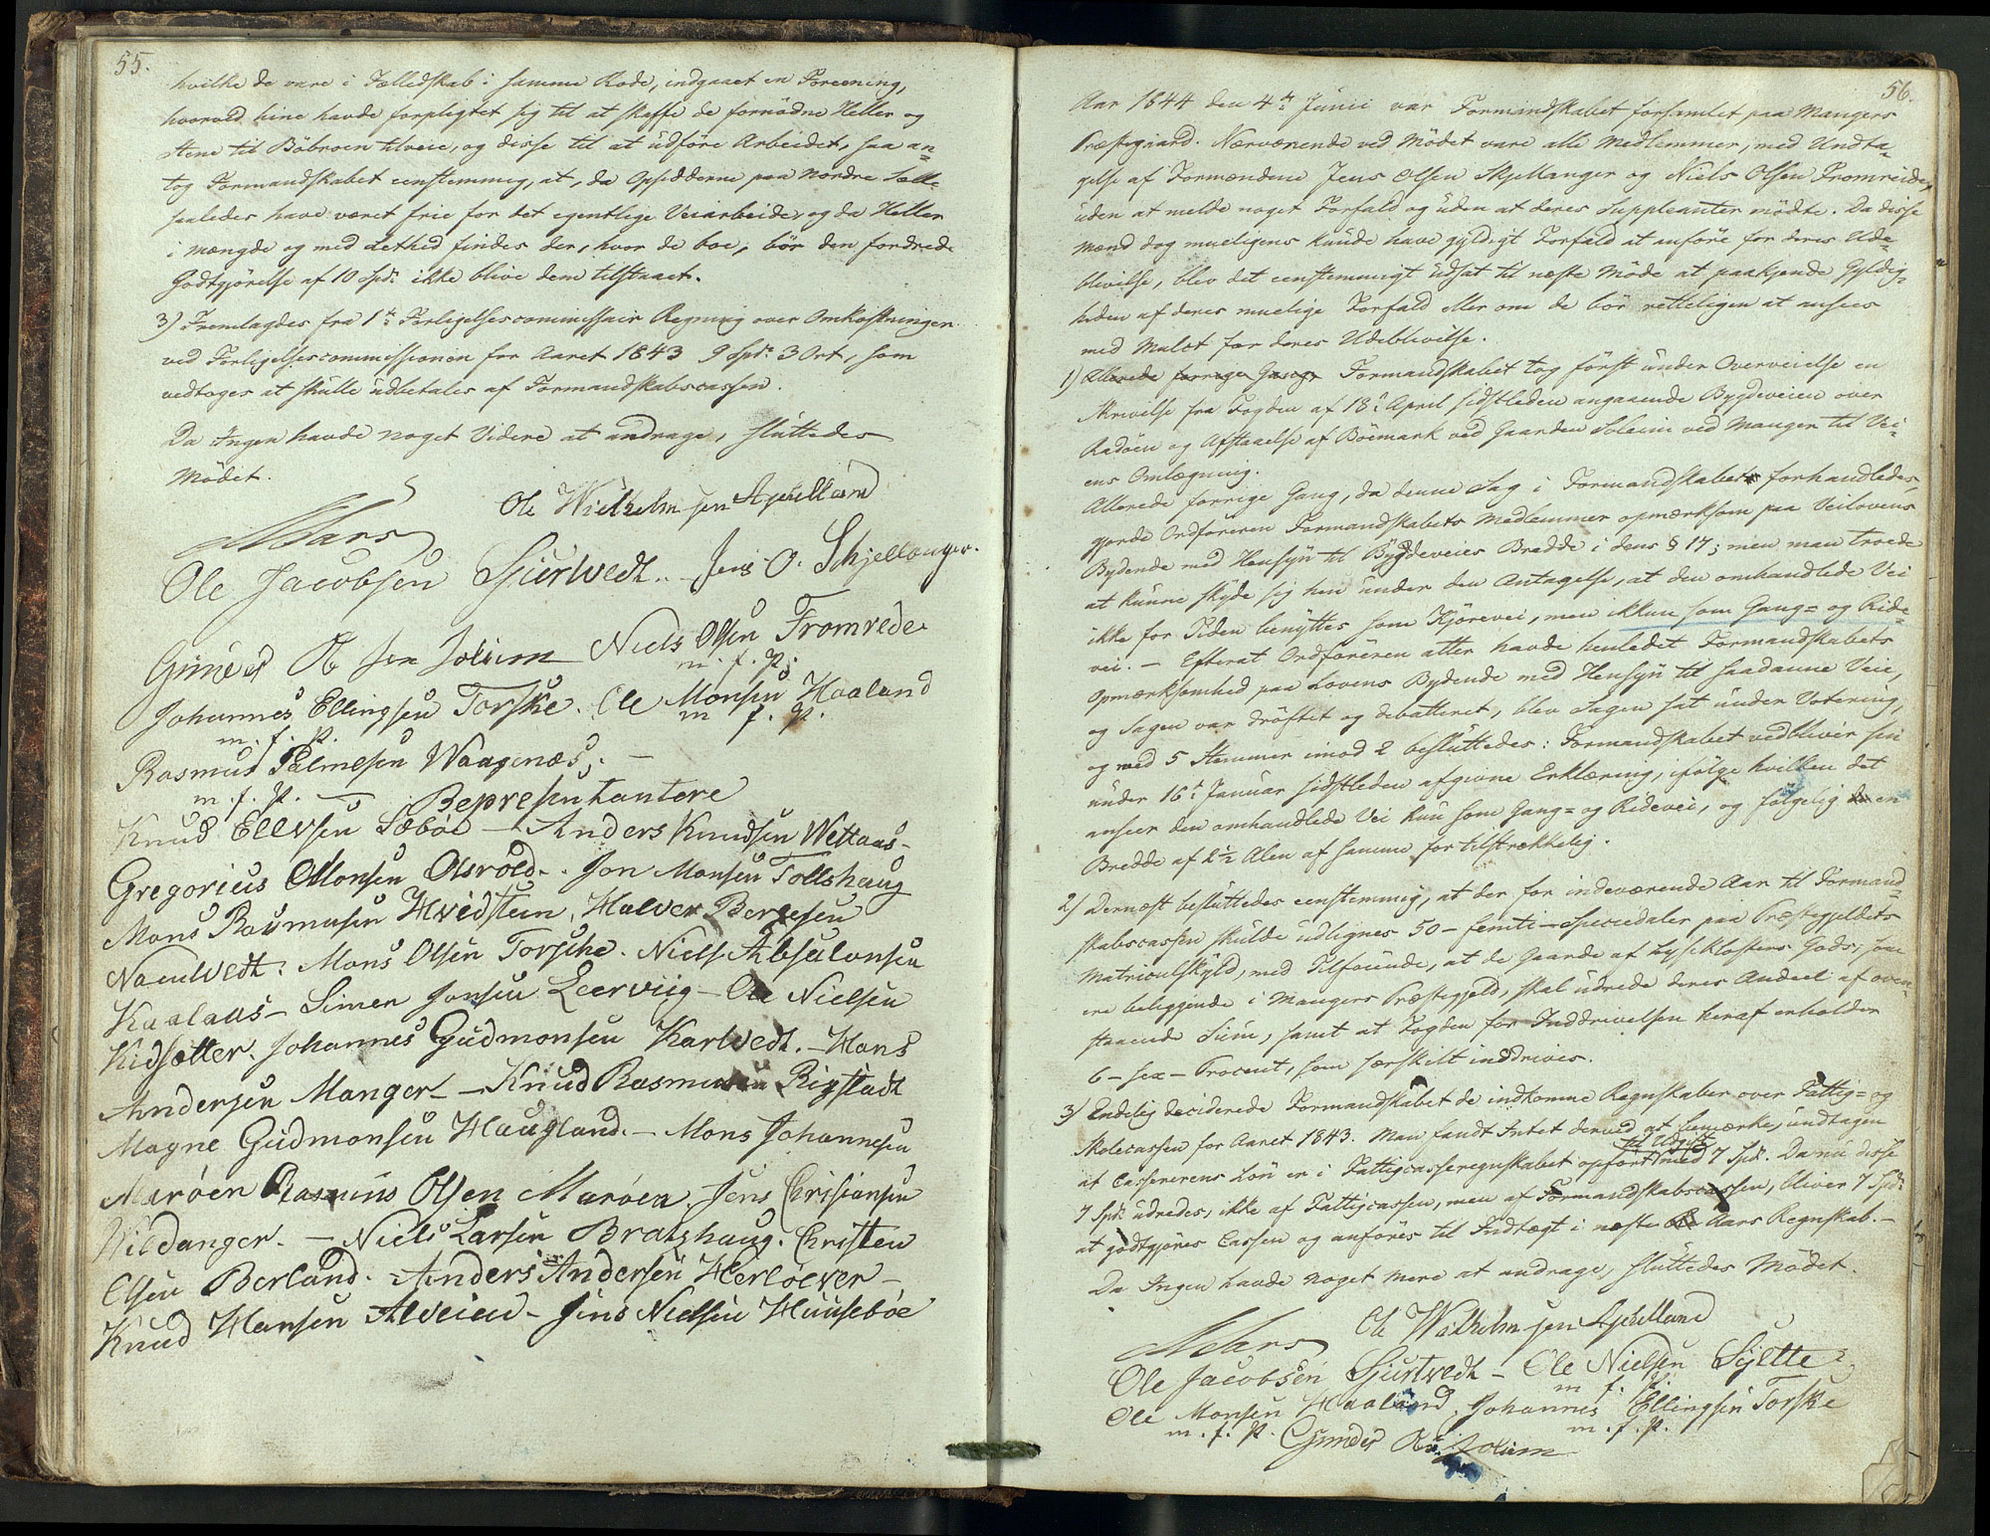 55.
hvilke de vare i Fælledskab i samme Rode, indgaaet en Forening,
hvorved hine havde forpligtet sig til at skaffe de fornødne Heller og
Stene til Böbroen tilveie, og disse til at udföre Arbeidet, saa an=
tog Formandskabet eenstemmig, at, da Opsidderne paa Nordre
saaledes have været frie for det egentlige Veiarbeide, og da Heller
i Mængde og med Lethed findes der, hvor de boe, bör den fordrede
Godtgjörelse af 10 Spd. ikke blive dem tilstaaet.
3) Fremlagdes fra 1ste Forligelsescommissair Regning over Omkostninger
ved Forligelsescommissionen for Aaret 1843 9 Spd. 3 Ort, som
vedtoges at skulle udbetales af Formandskabscassen.
Da Ingen havde noget Videre at andrage, sluttedes
Mödet.
Ole Wilhelmsen
Ole Jacobsen Sjurtvedt. Jens O. Schjellanger.
Gunder Olsen Soliem Niels Olsen Fromrede
m. f. P.
Johannes Ellingsen Torske. Ole Monsen Haaland
m. f. P. m f. P.
Rasmus Palmesen Waagenæs.
m. f. P. Representantere
Knud Ellevsen Sæböe – Anders Knudsen Wettaas –
Gregorius Monsen Olsvold. Jon Monsen Tollshaug
Mons Rasmusen Hvidsteen, Halver Bergesen
Namtvedt. Mons Olsen Torsche. Niels Absalonsen
Kaalaas – Simen Jonsen Leerviig – Ole Nielsen
Kidsætter. Johannes Gudmonsen Kartvedt. – Hans
Andersen Manger – Knud Rasmusen Rigstadt
Magne Gudmonsen Haugland. – Mons Johannesen
Maröen Rasmus Olsen Maröen. Jens Christiansen
Kildanger. – Niels Larsen Brateshaug. Christen
Olsen Berland. Anders Andersen Herlöever –
Knud Hansen Alveien – Jens Nielsen Huuseböe
56.
Aar 1844 den 4de Junii var Formandskabet forsamlet paa Mangers
Præstegaard. Nærværende ved Mödet vare alle Medlemmer, med Undta=
gelse af Formændene Jens Olsen Skjellanger og Niels Olsen Fromreide,
uden at melde noget Forfald og uden at deres Suppleanter mödte. Da disse
Mænd dog mueligens kunde have gyldigt Forfald at anföre for deres Ude=
blivelse, blev det eenstemmigt udsat til næste Möde at paakjende Gyldig=
heden af deres muelige Forfald eller om de bör retteligen at ansees
med Mulct for deres Udeblivelse.
1) Allerede forrige Gang, Formandskabet tog först under Overveielse en
Skrivelse fra Fogden af 18de April sidstleden angaaende Bygdeveien over
Radöen og Afstaaelse af Bömark ved Gaarden Soleim ved Manger til Vei=
ens Omlægning.
Allerede forrige Gang, da denne Sag i Formandskabet forhandledes,
gjorde Ordföreren Formandskabets Medlemmer opmærksom paa Veilovens
Bydende med Hensyn til Bygdeveies Bredde i dens § 17; men man troede
at kunne skyde sig hen under den Antagelse, at den omhandlede Vei
ikke for Tiden benyttes som Kjörevei, men ikkun som Gang= og Ride=
vei. – Efterat Ordföreren atter havde henledet Formandskabets
Opmærksomhed paa Lovens Bydende med Hensyn til saadanne Veie,
og Sagen var dröftet og debatteret, blev Sagen sat under Votering,
og med 5 Stemmer imod 2 besluttedes: Formandskabet vedbliver sin
under 16de Januar sidstleden afgivne Erklæring, ifölge hvilken det
anseer den omhandlede Vei kun som Gang= og Ridevei, og fölgelig en
Bredde af 2½ Alen af samme for tilstrækkelig.
2) Dernæst besluttedes eenstemmig, at der for indeværende Aar til Formand=
skabscassen skulde udlignes 50 – femti – Speciedaler paa Præstegjeldets
Matriculskyld, med Tilföiende, at de Gaarde af Lyseklosters Gods, som
ere beliggende i Mangers Præstegjeld, skal udrede deres Andeel af oven=
staaende Sum, samt at Fogden for Inddrivelsen heraf erholder
6 – sex – Procent, som særskilt inddrives.
3) Endelig deciderede Formandskabet de indkomne Regnskaber over Fattig= og
Skolecassen for Aaret 1843. Man fandt Intet derved at bemærke, undtagen
til Udgift
at Cassererens Lön er i Fattigcasseregnskabet opfört med 7 Spd. Da nu disse
7 Spd. udredes, ikke af Fattigcassen, men af Formandskabscassen, bliver 7 Spd.
at godtgjöres Cassen og anföres til Indtægt i næste Aars Regnskab. –
Da Ingen havde noget mere at andrage, sluttedes Mödet.
Ole Wilhelmsen
Ole Jacobsen Sjurtvedt – Ole Nielsen Sylte
m f. P.
Ole Monsen Haaland. Johannes Ellingsen Torske
m. f. P. m. f. P.
Gunder Ols. Soliem